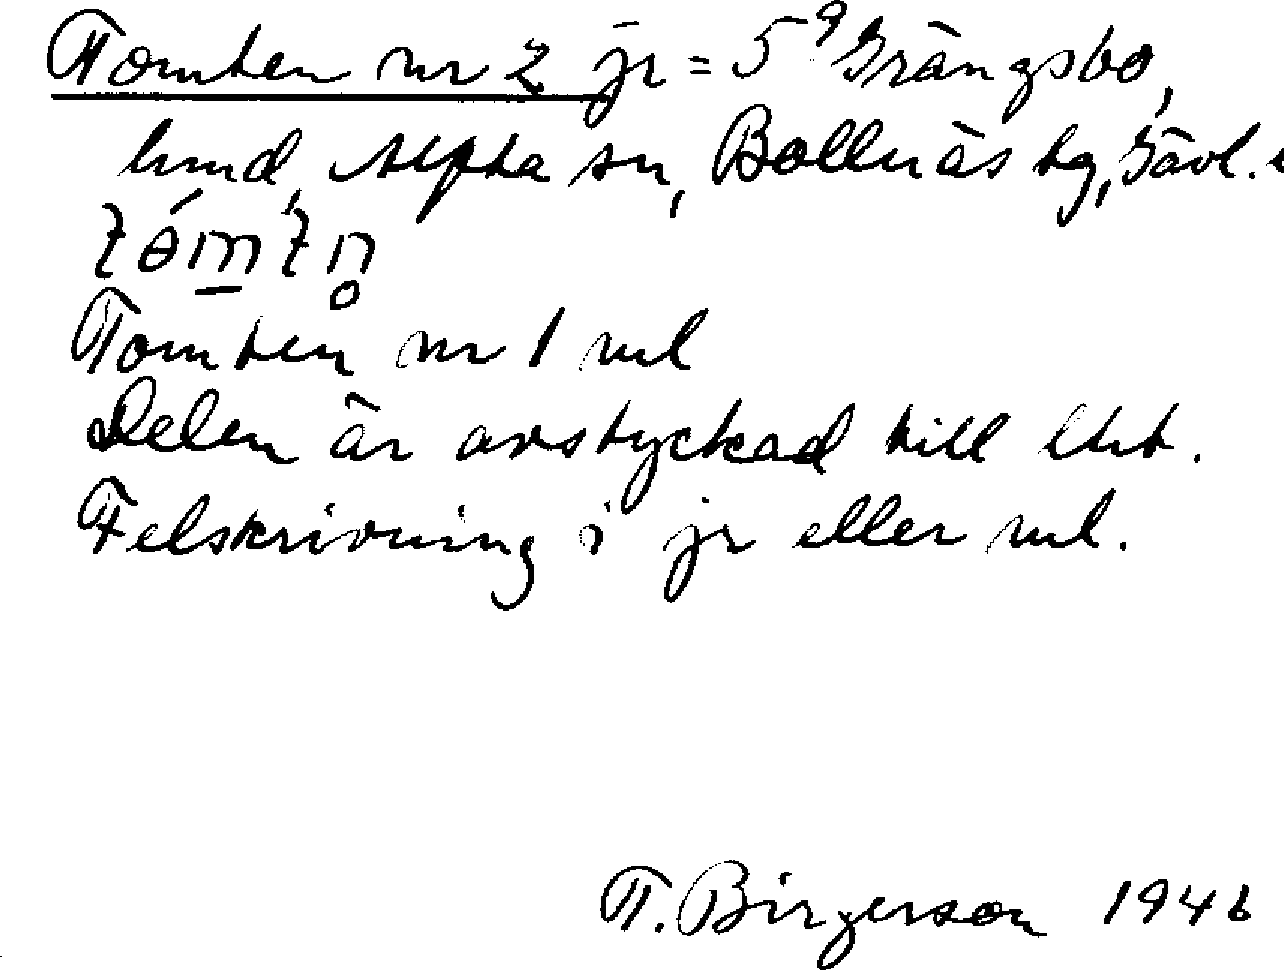 Tomten nr 2 jr = 5⁹ Grängsbo,
hmd, Alfta sn, Bollnäs tg, Gävl. l
tǿm̲tn̥
Tomten nr 1 ml
Delen är avstyckad till lht.
Felskrivning i jr eller ml.
T. Birgerson 1946